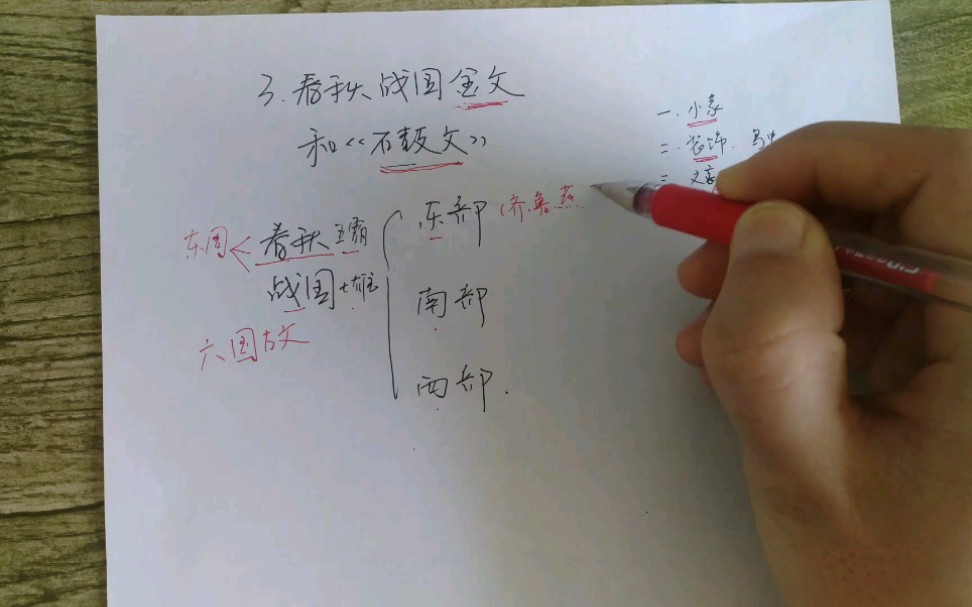 3.春秋战国金文
和《石鼓文》
一.小篆
二.装饰.鸟虫
三 文字
东周<春秋五霸
战国七雄
六国古文
东部(齐.鲁.燕
南部
西部.